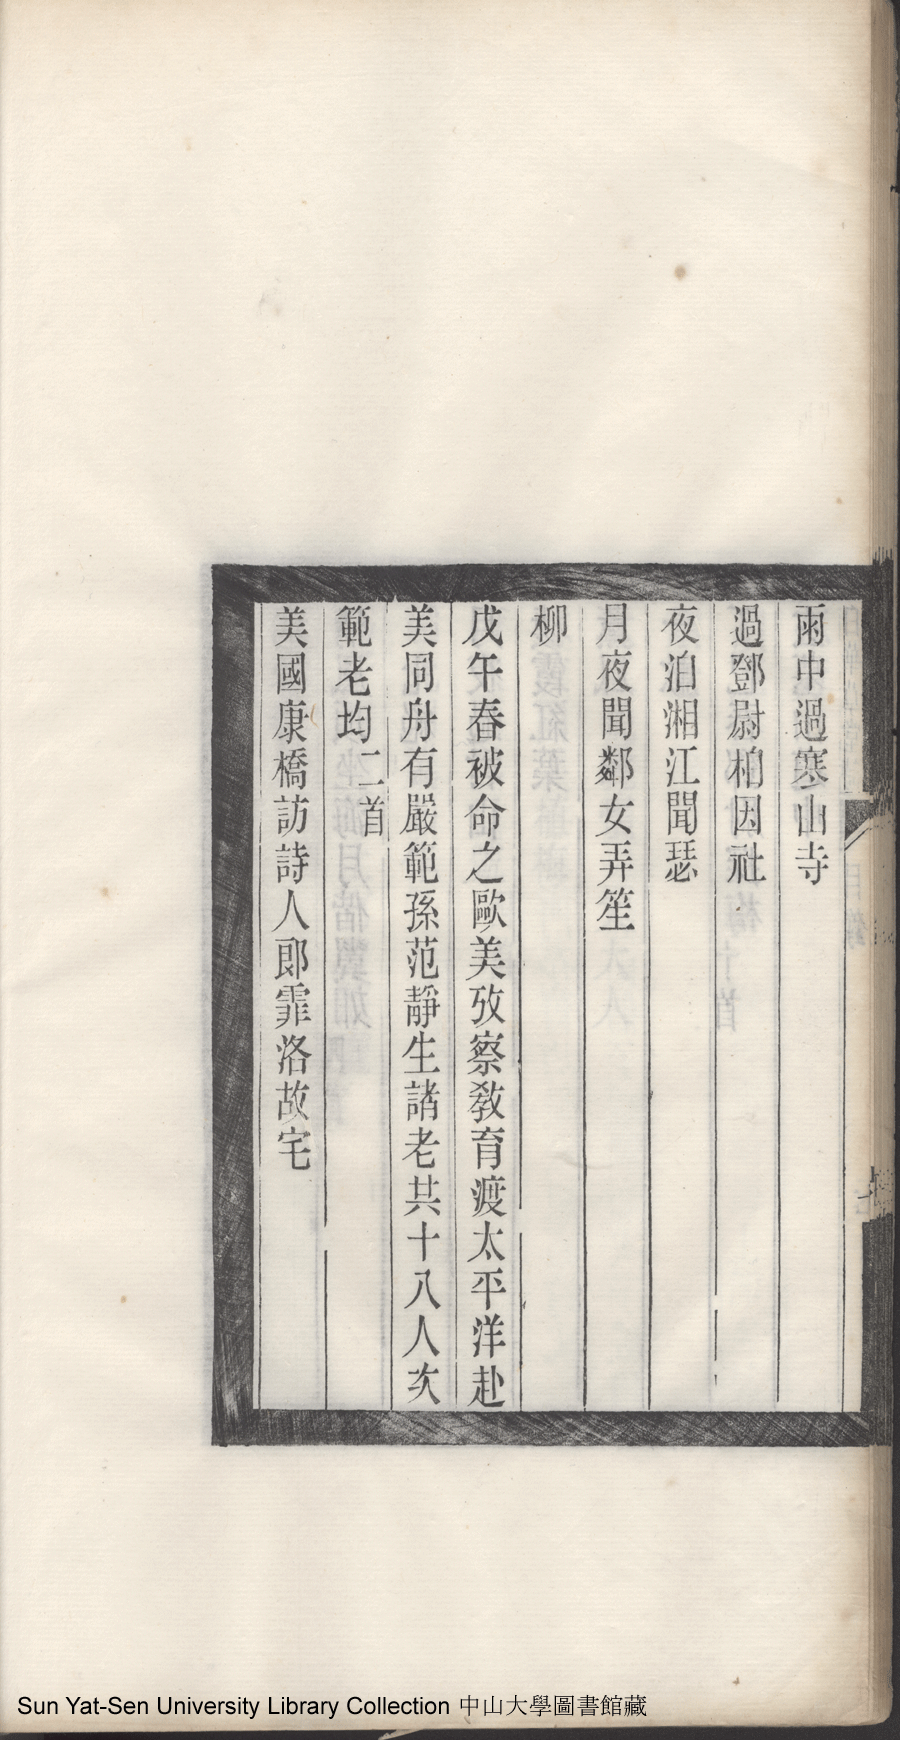 雨中過寒山寺
過鄧尉柏因社
夜泊湘江聞瑟
月夜聞鄰女弄笙
柳
戊午春被命之歐美攷察教育渡太平洋赴
美同舟有嚴範孫范靜生諸老共十八人次
範老均二首
美國康橋訪詩人郎霏洛故宅
Sun Yat-Sen University Library Collection 中山大學圖書館藏